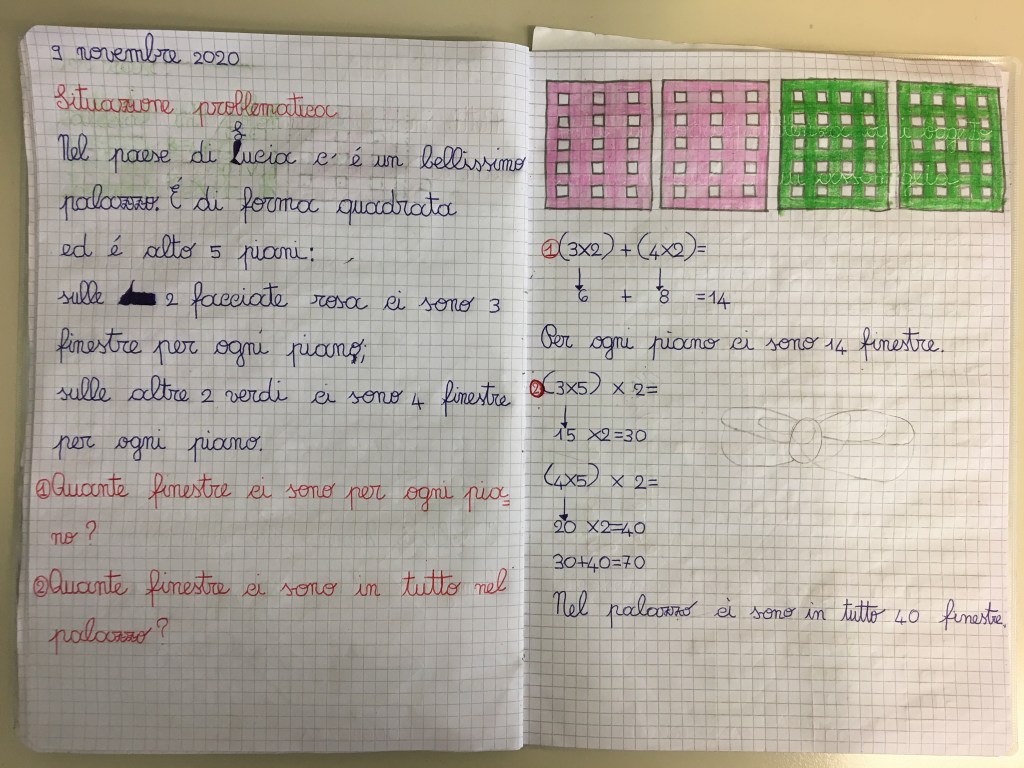 9 novembre 2020
Situazione problematica
Nel paese di Lucia c'é un bellissimo
palazzo. É di forma quadrata
ed é alto 5 piani:
sulle 2 facciate rosa ci sono 3
finestre per ogni piano;
sulle altre 2 verdi ci sono 4 finestre
per ogni piano.
①Quante finestre ci sono per ogni pia=
no?
②Quante finestre ci sono in tutto nel
palazzo?
①(3x2) + (4x2)=
6 + 8 =14
Per ogni piano ci sono 14 finestre.
②(3x5) x 2=
15 x2=30
(4x5) x 2=
20 x2=40
30+40=70
Nel palazzo ci sono in tutto 40 finestre.